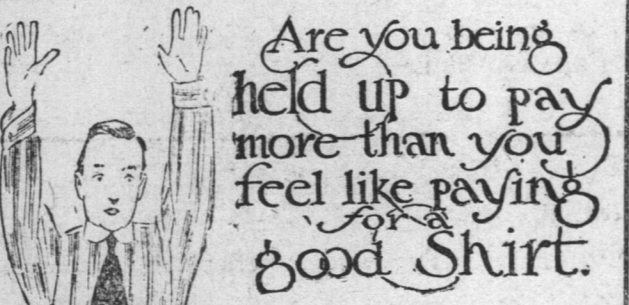 Are you being
held up to pay
more than you
feel like paying
for a
good Shirt.